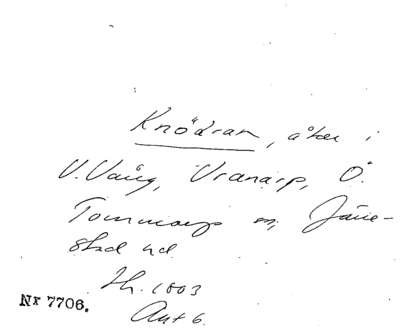 Knödran, åker i
V. Vång, Vranarp, Ö.
Tommarp sn, Järre-
stad hd
Sk. 1803
Akt 6.
Nr 7706.